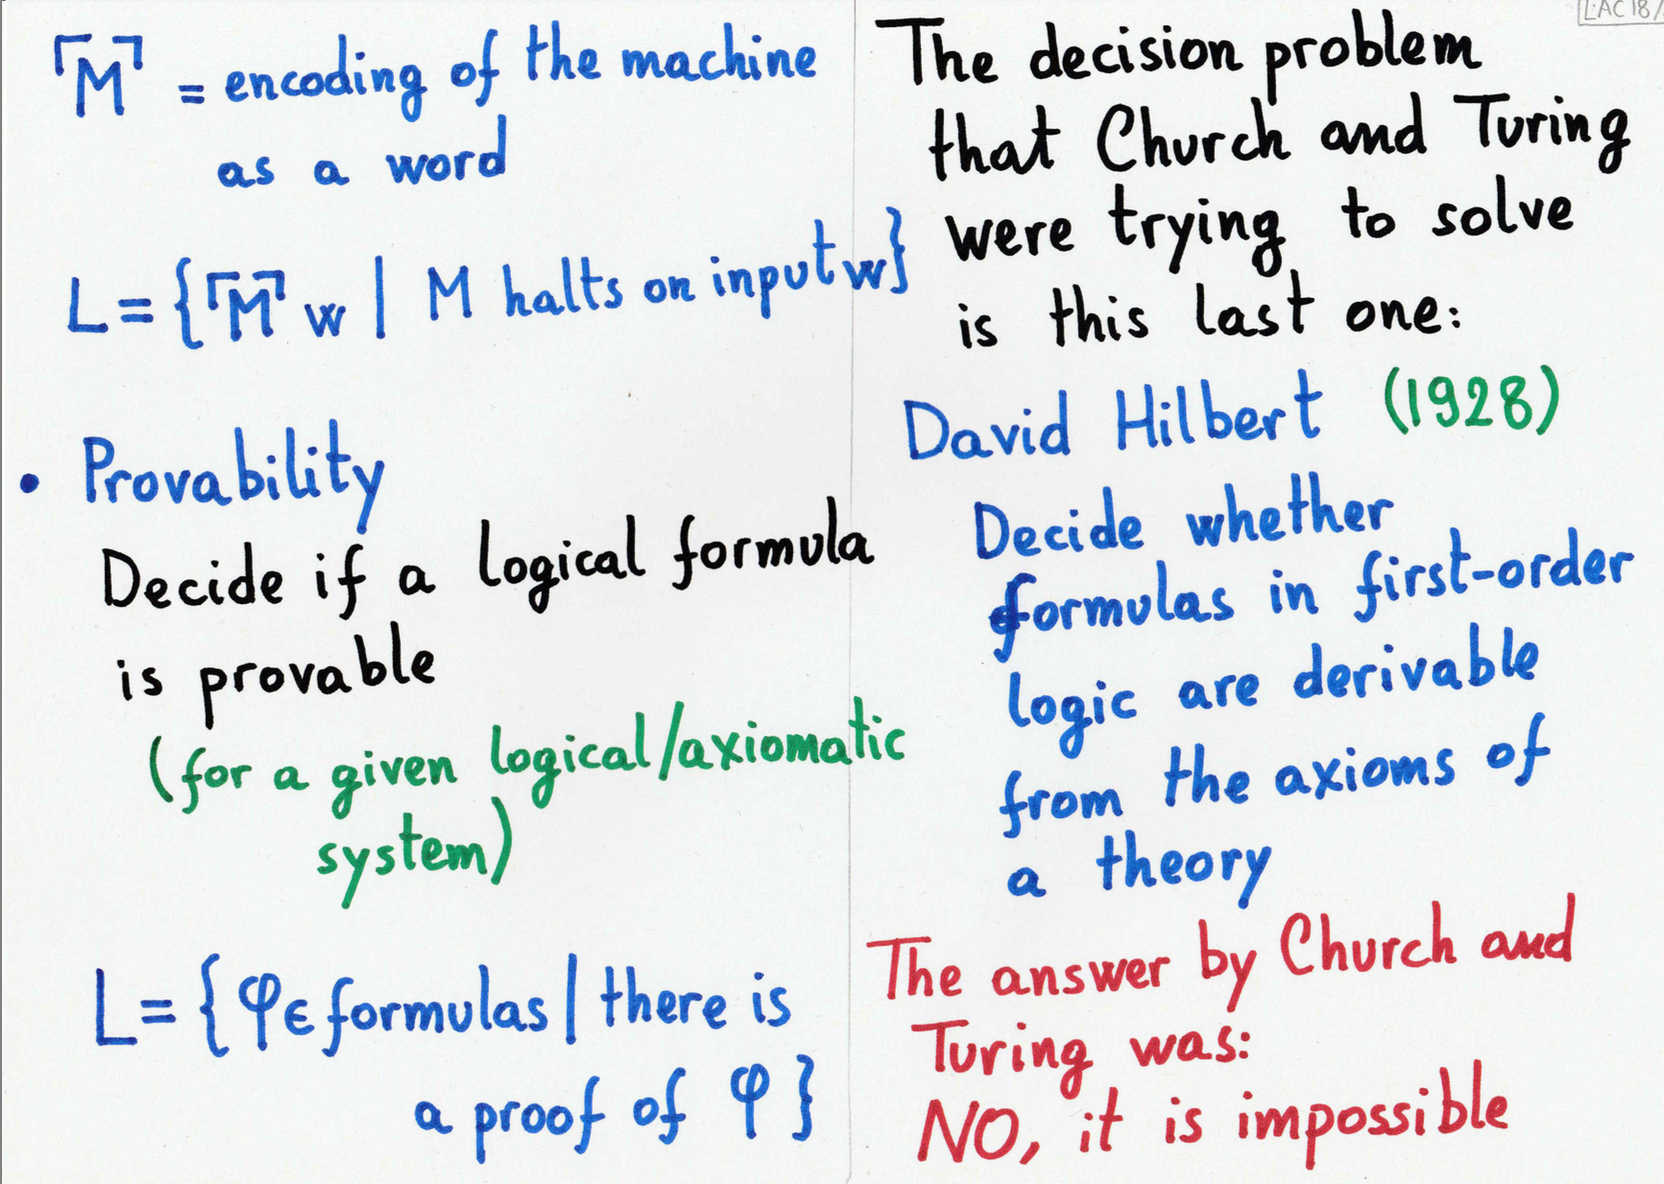 ⌜M⌝ = encoding of the machine
as a word
L = {⌜M⌝ w | M halts on input w}
• Provability
Decide if a logical formula
is provable
(for a given logical/axiomatic
system)
L = {φ ∈ formulas | there is
a proof of φ}
The decision problem
that Church and Turing
were trying to solve
is this last one:
David Hilbert (1928)
Decide whether
formulas in first-order
logic are derivable
from the axioms of
a theory
The answer by Church and
Turing was:
NO, it is impossible